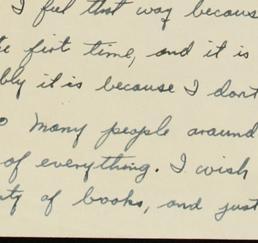 I feel that way because
first time, and it is
it is because I dont
Many people around
of everything. I wish
of books, and just